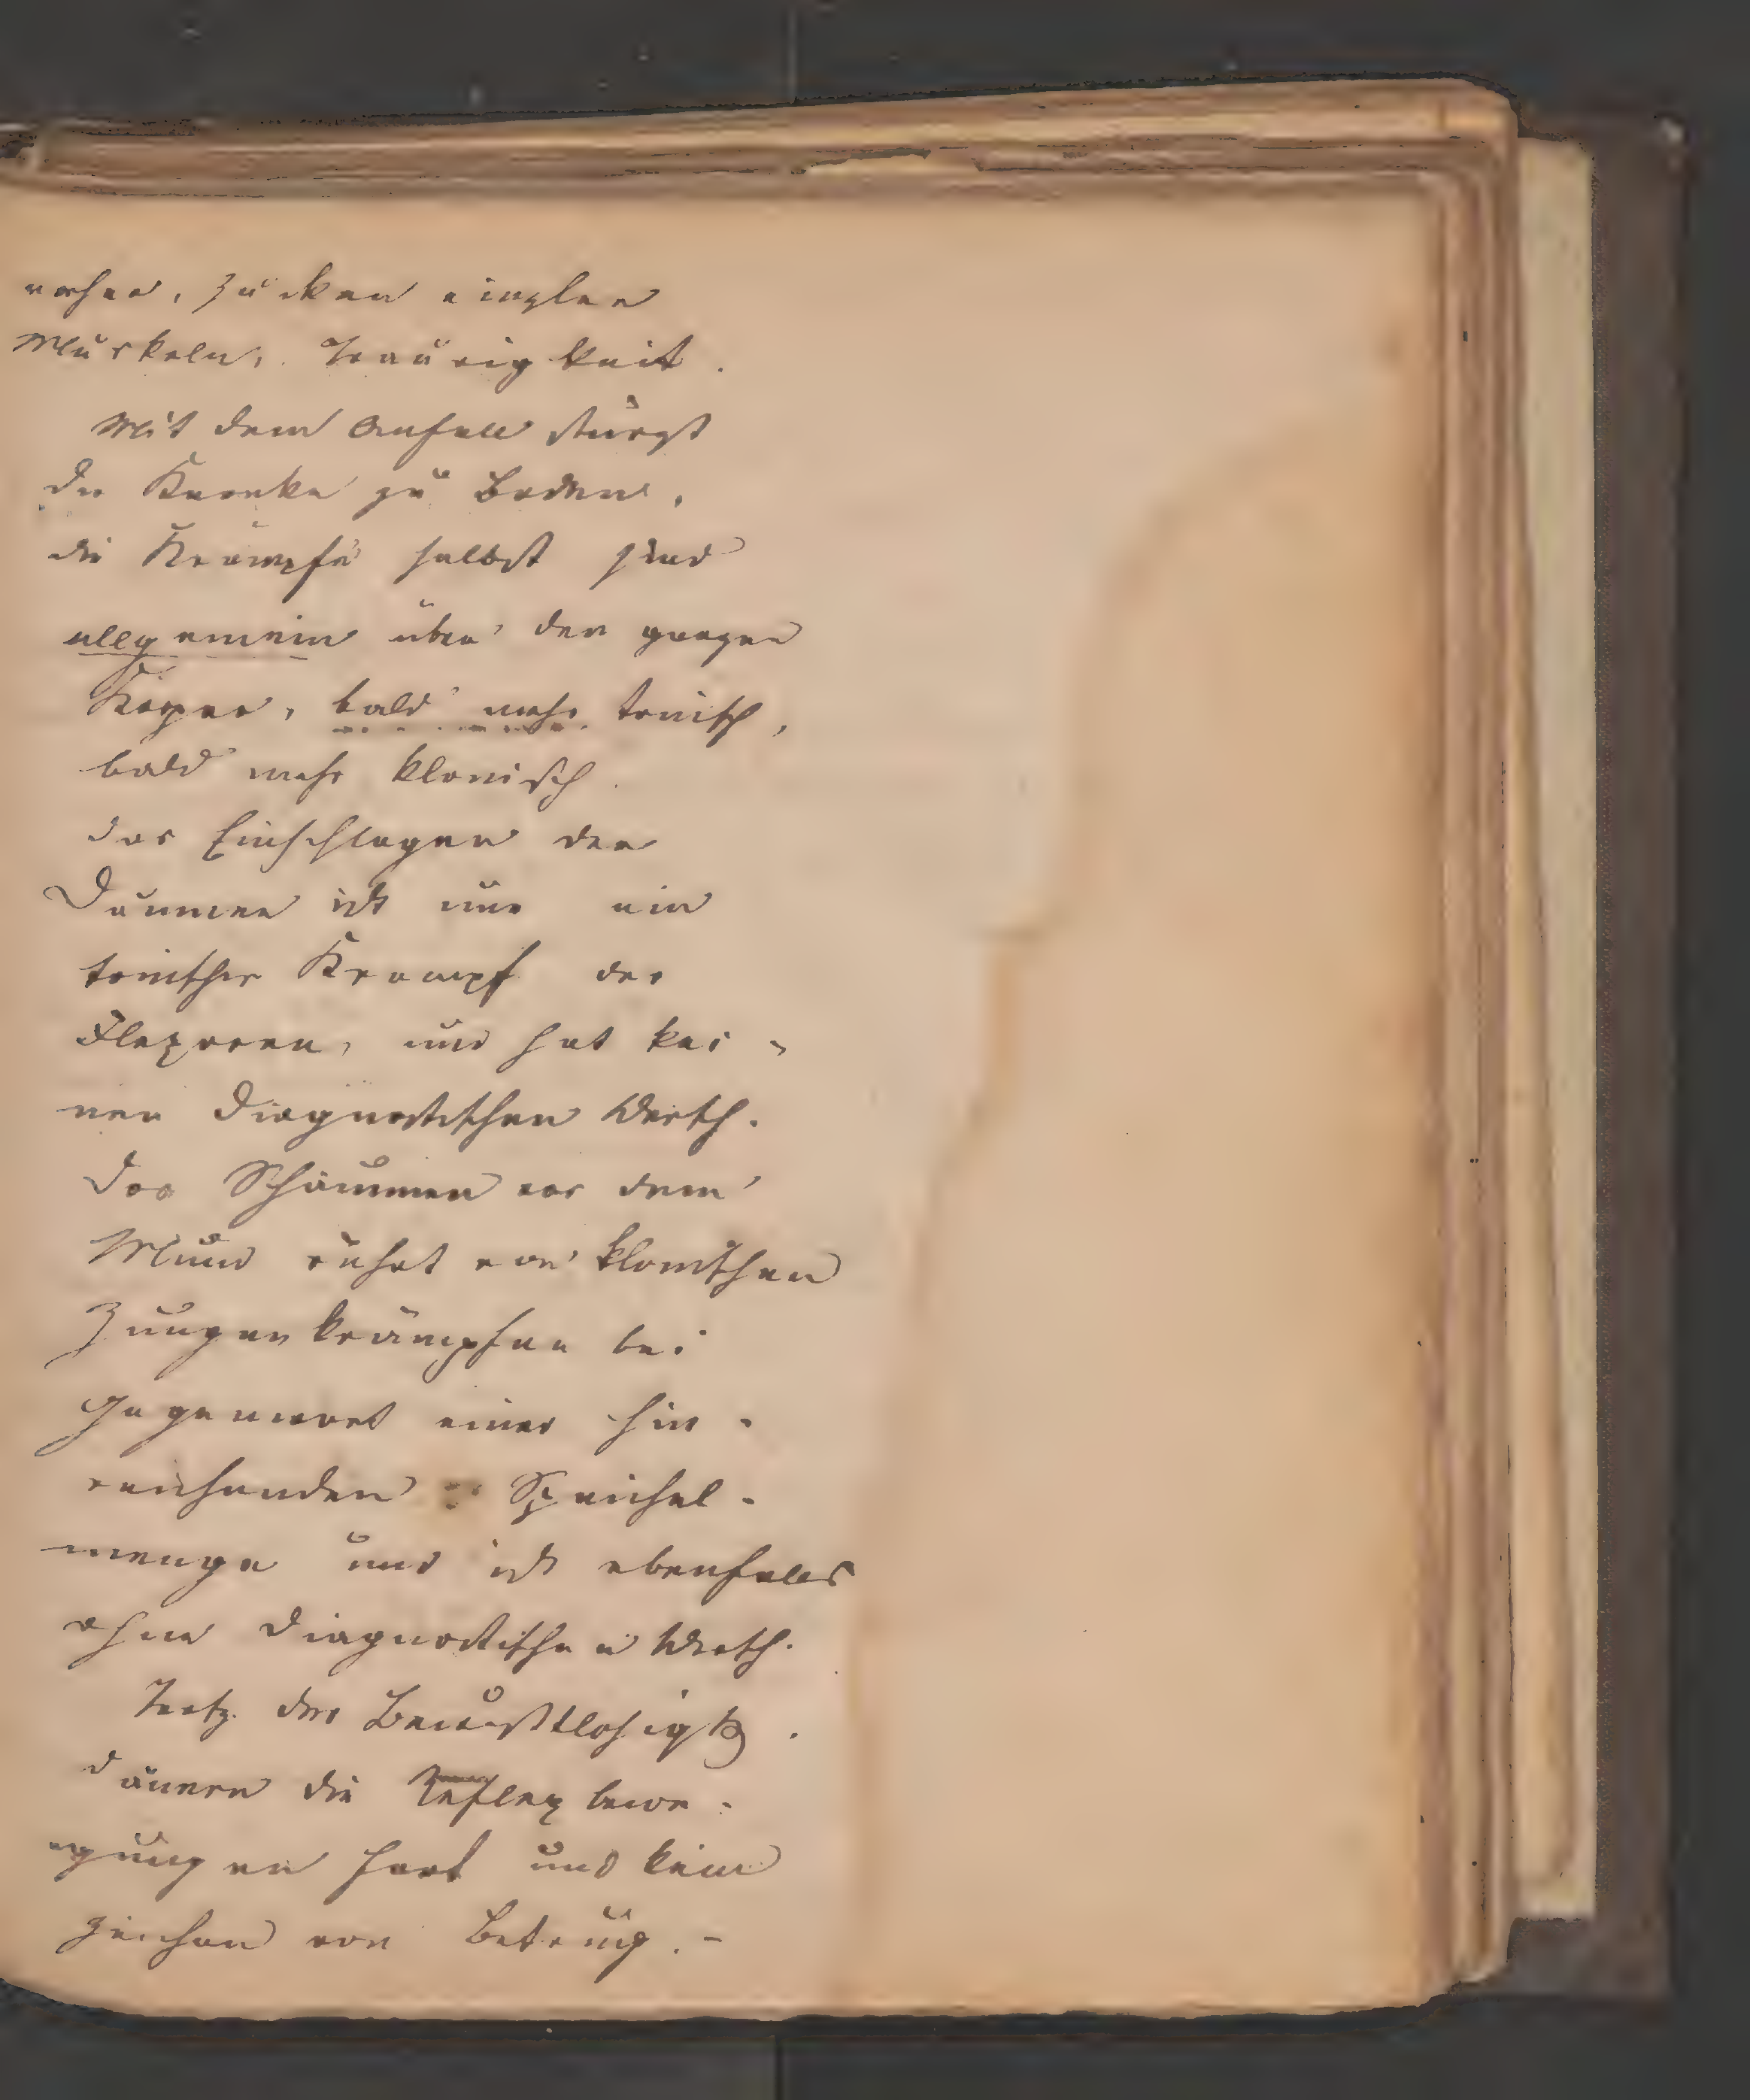 Zucken einzlner
Muskeln, Traurigkeit.
Mit dem Anfall stürzt
der Kranke zu Boden,
die Krämpfe selbst sind
allgemein über den ganzen
Körper, bald mehr tonisch,
bald mehr klonisch.
das Einschlagen der
Daumen ist nur ein
tonischer Krampf der
Flexoren, und hat kei-
nen diagnostischen Werth.
das Schäumen vor dem
Mund rührt von klonischen
Zungenkrämpfen bei
Gegenwart einer hin-
reichenden Speichel-
menge und ist ebenfalls
ohne diagnostischen Werth.
Trotz der Bewustlosigk
dauern die Reflexbewe-
gungen fort und kein
Zeichen von Betrug. -